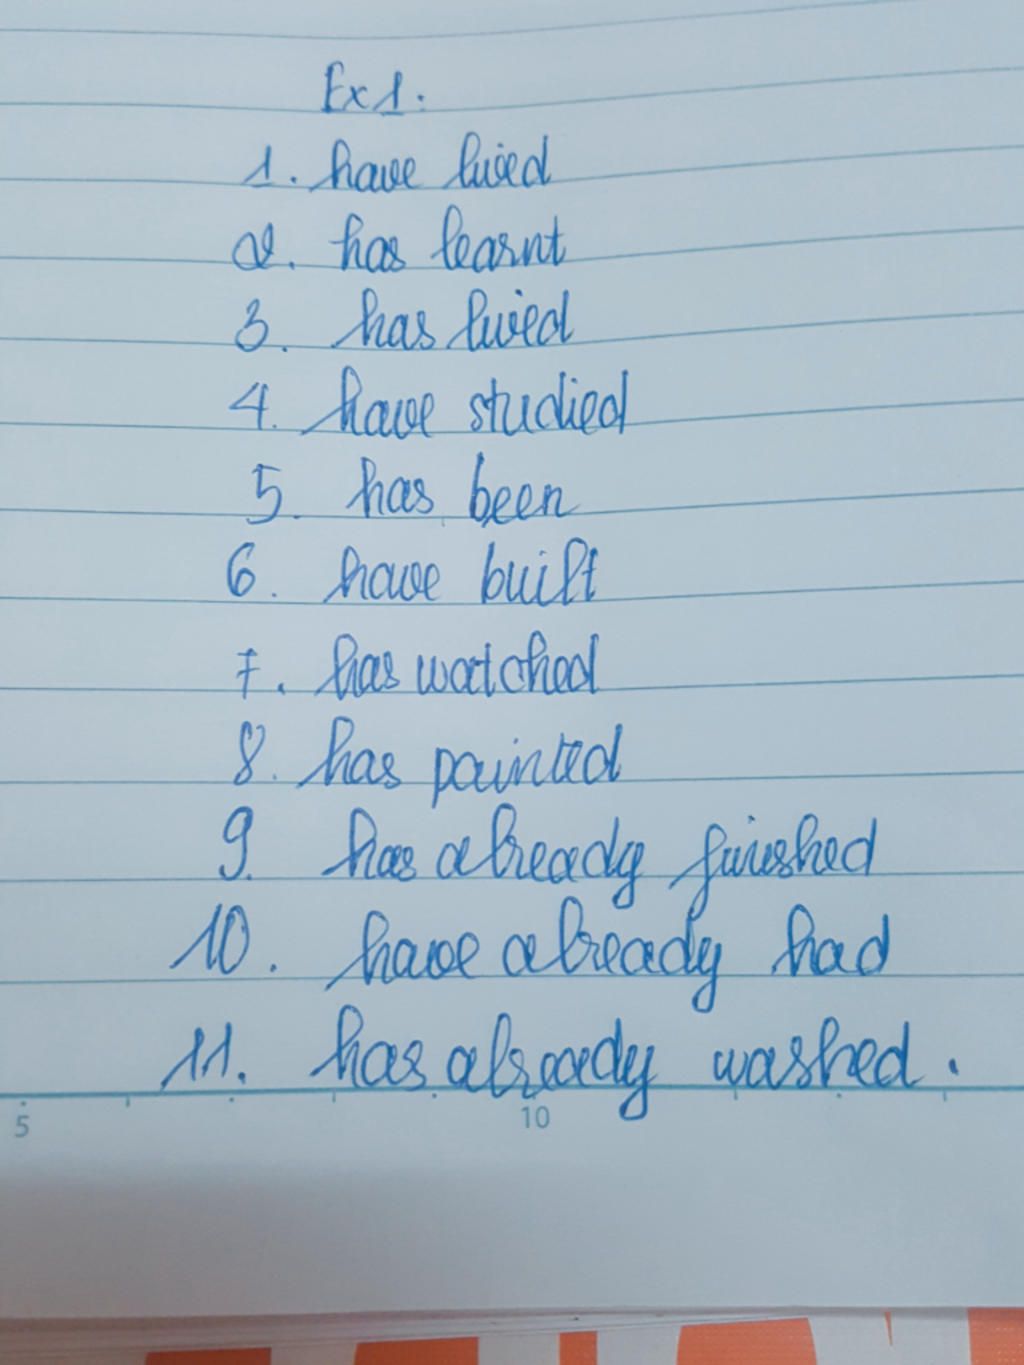 Ex 1.
1. have lived
2. has learnt
3. has lived
4. have studied
5. has been
6. have built
7. has watched
8. has painted
9. has already finished
10. have already had
11. has already washed.
5 10